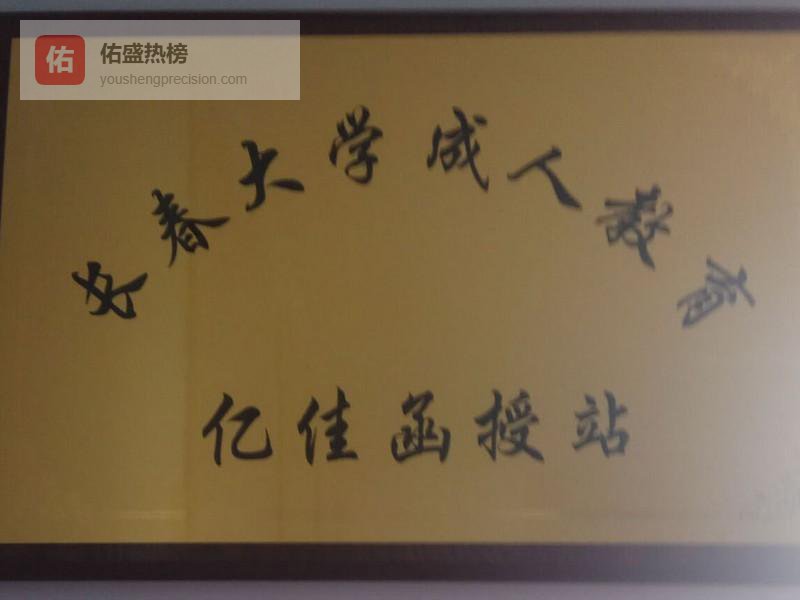 佑
佑盛热榜
youshengprecision.com
长春大学成人教育
亿佳函授站